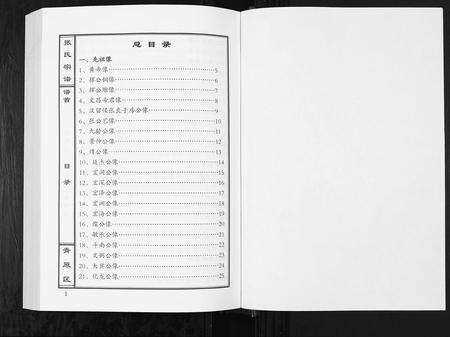 张氏宗谱
谱首
目录
青原区
总目录
一、先祖像
1、黄帝像 5
2、挥公铜像 6
3、挥公雕像 7
4、文昌帝君像 8
5、汉留侯张良子房公像 9
6、张公艺像 10
7、九龄公像 11
8、景仲公像 12
9、 公像 13
10、廷杰公像 14
11、宏润公像 15
12、宏深公像 16
13、宏泽公像 17
14、宏渊公像 18
15、宏海公像 19
16、 公像 20
17、敏承公像 21
18、斗南公像 22
19、文炳公像 23
20、大其公像 24
21、化龙公像 25
1